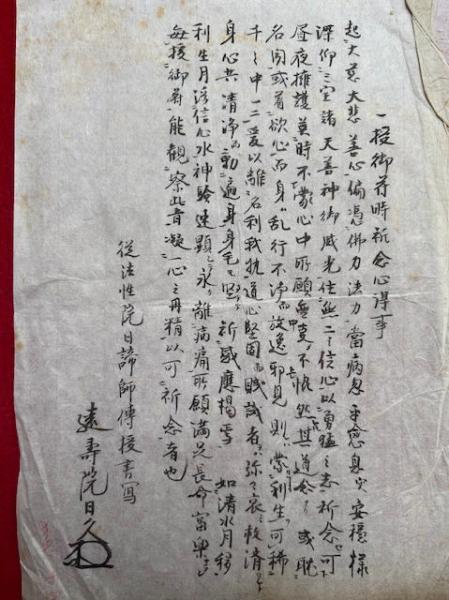 一授御符時祈念心得事
起大慈大悲善心偏憑佛力法力當病息平愈息災安穩様
深仰三宝諸天善神御威光住無二信心以勇猛之志祈念可
昼夜擁護莫時不蒙心中所願無不
名聞或首欲心而身乱行不浄而放逸邪見則蒙利生可稀
千之中一二爰以離名利我執道心堅固賎哉者弥々哀救清
身心共清浄而動遍身身毛堅祈感應揭焉如清水月移
利生月浮信心水神験速顕永離病痛所願満足長命富樂
毎授御符能觀察此旨凝一心之丹精以可祈念者也
従法性院日諦師傳授書写
遠壽院日久